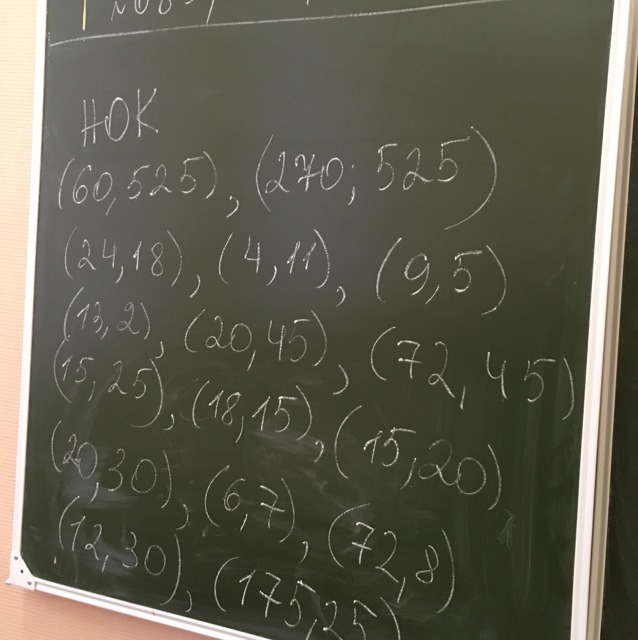 НОК
(60,525), (270; 525)
(24,18), (4,11), (9,5)
(13,2), (20,45), (72,45)
(15,25), (18,15), (15,20)
(20,30), (6,7), (72,8)
(12,30), (175,25)